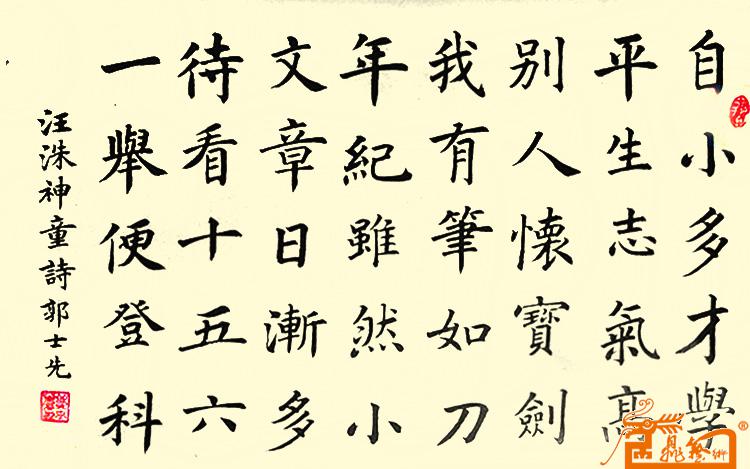 自小多才學
平生志氣高
别人懷寶劍
我有筆如刀
年紀雖然小
文章日漸多
待看十五六
一舉便登科
汪洙神童詩郭士先